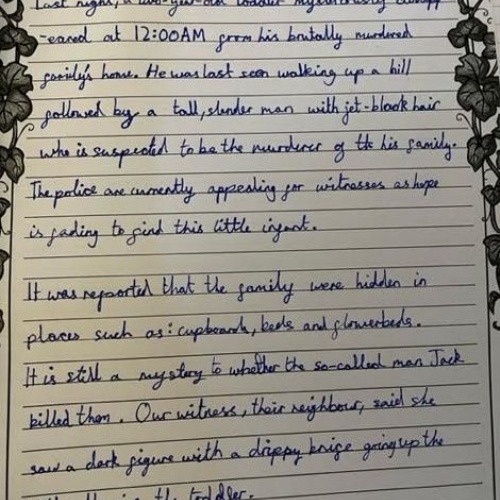 Last night, a two-year-old toddler mysteriously disapp
-eared at 12:00AM from his brutally murdered
family's home. He was last seen walking up a hill
followed by a tall, slender man with jet-black hair
who is suspected to be the murderer of th his family.
The police are currently appealing for witnesses as hope
is fading to find this little infant.
It was reported that the family were hidden in
places such as: cupboards, beds and flowerbeds.
It is still a mystery to whether the so-called man Jack
killed them. Our witness, their neighbour, said she
saw a dark figure with a drippy knife going up the
the toddler.